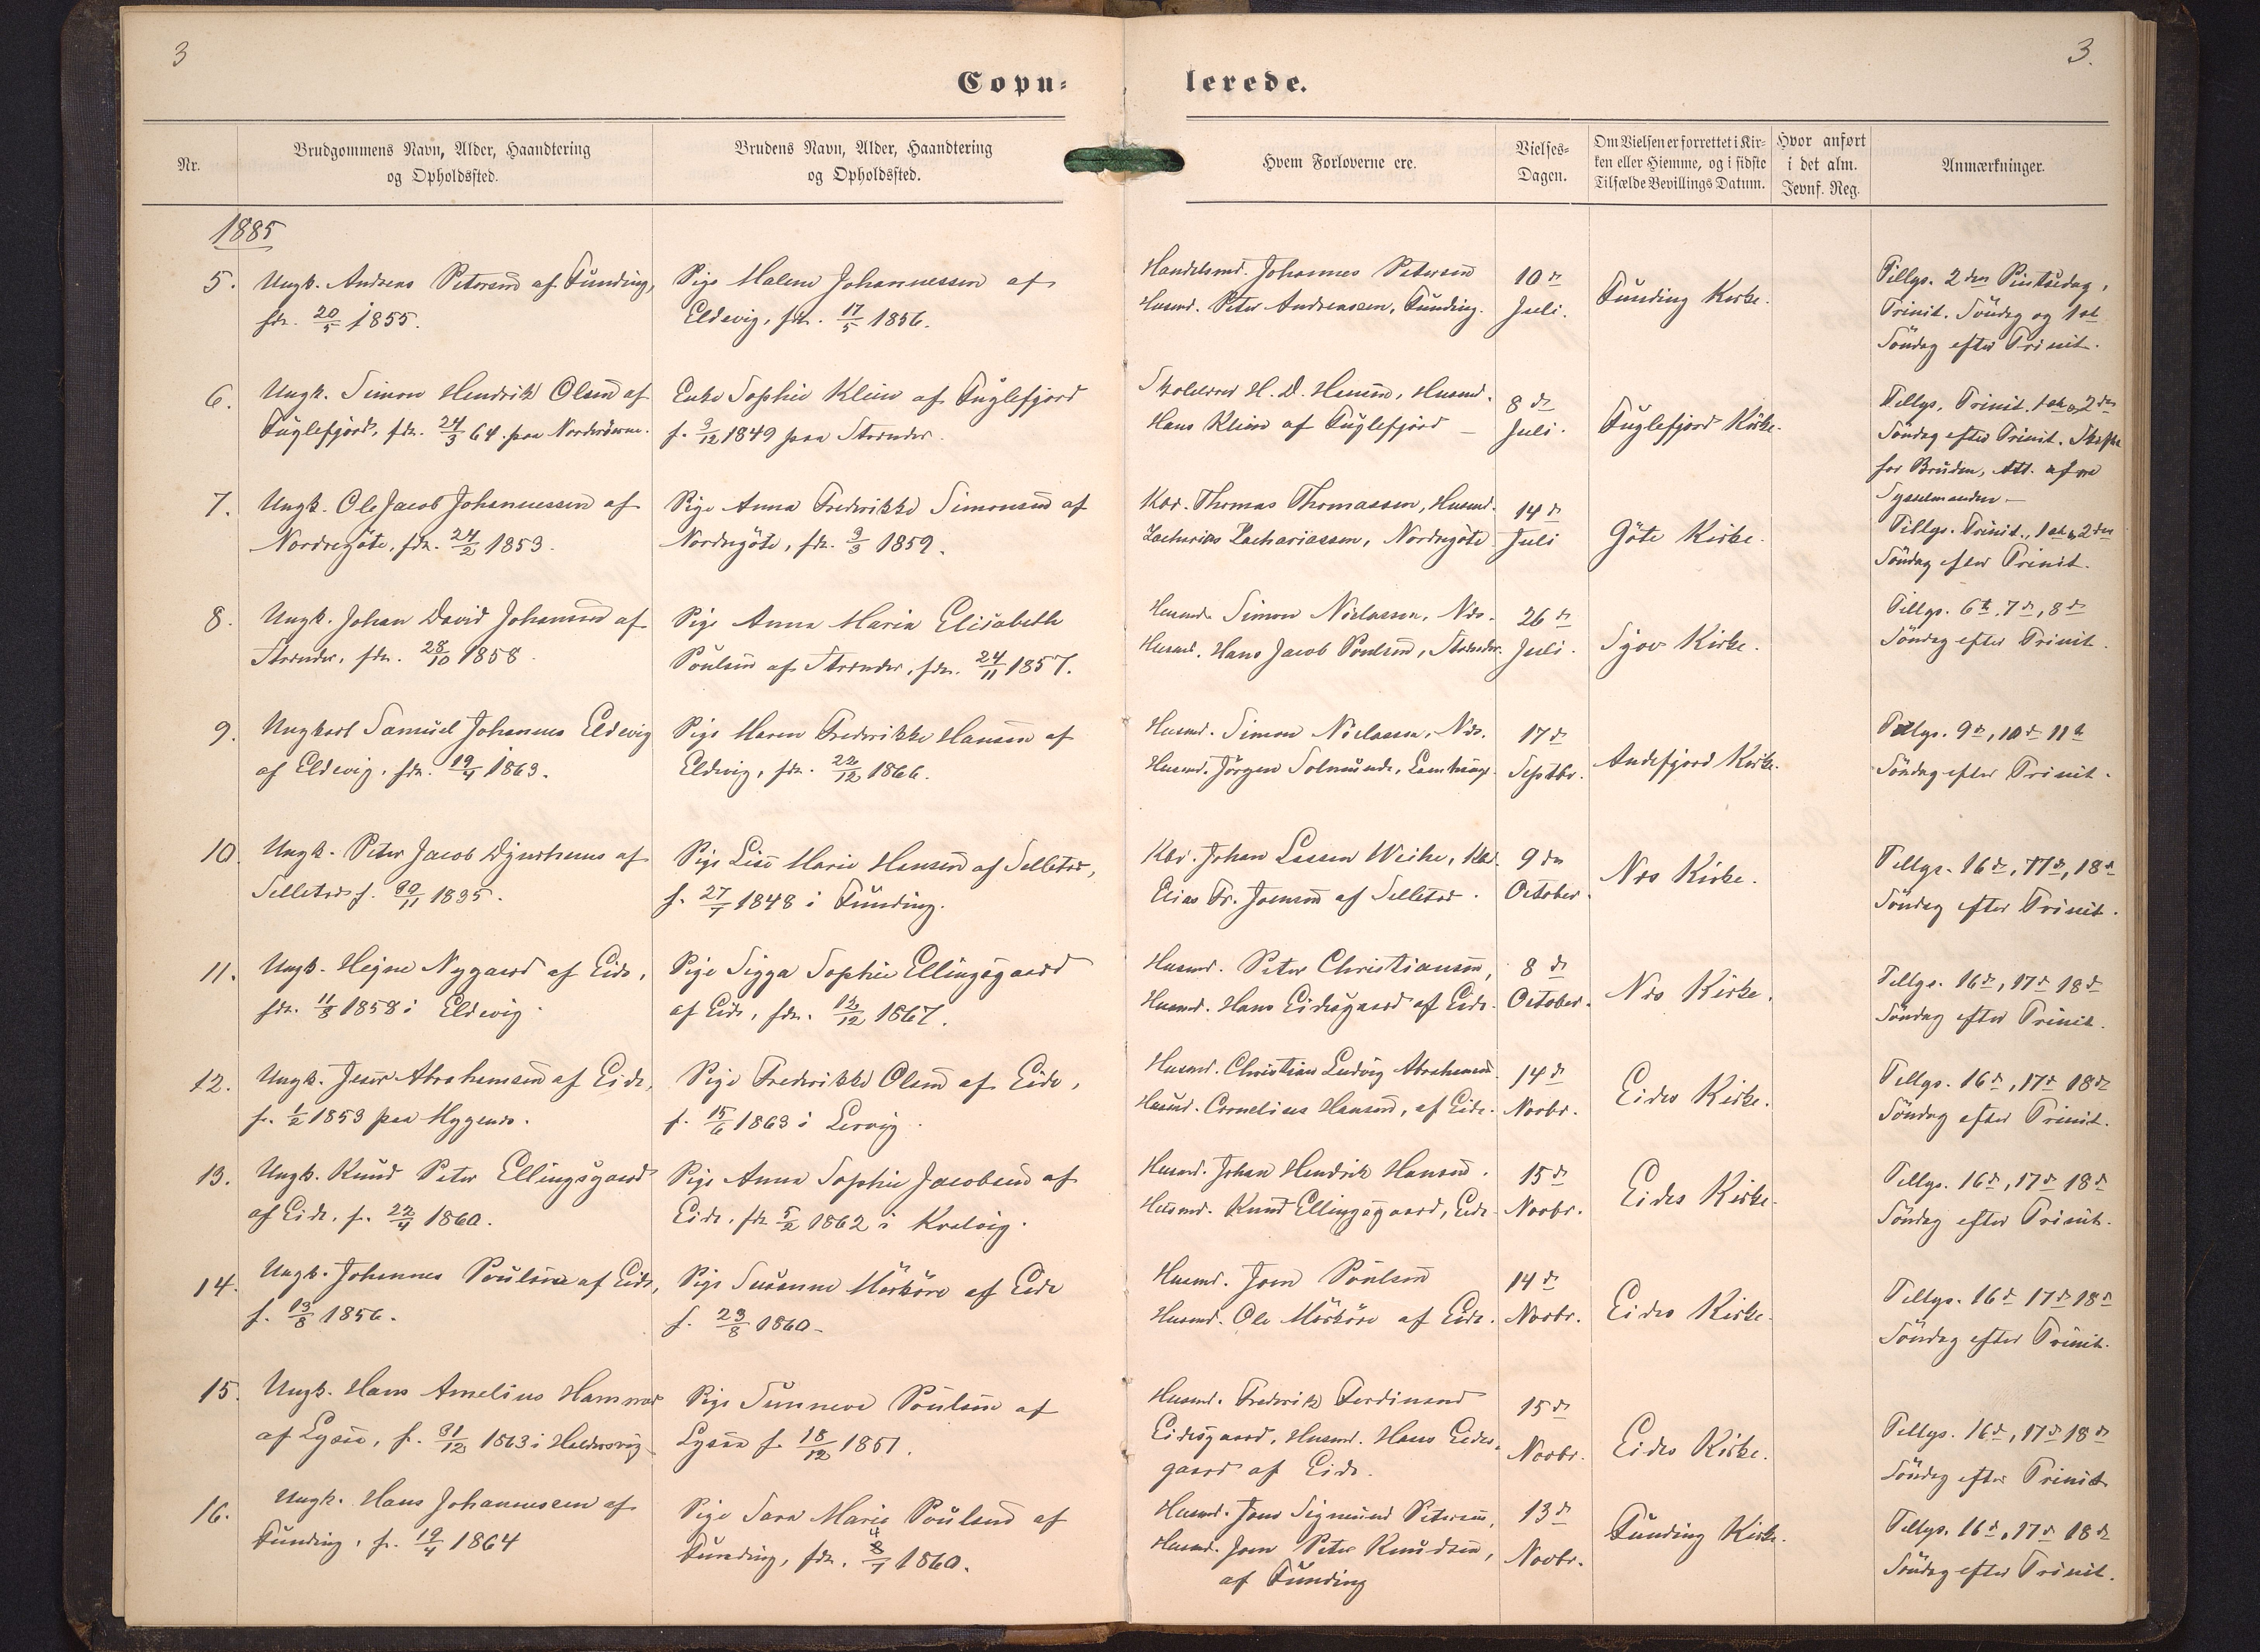 3
3.
Copu=
lerede.
Nr.
Brudgommens Navn, Alder, Haandtering
og Opholdssted.
Brudens Navn, Alder, Haandtering
og Opholdssted.
Hvem Forloverne ere.
Vielses=
Dagen.
Om Vielsen er forrettet i Kir=
ken eller Hjemme, og i sidste
Tilfælde Bevillings Datum.
Hvor anført
i det alm.
Jevnf. Reg.
Anmærkninger.
1885
5.
Ungk. Andreas Petersen af Funding,
fdt. 20/5 1855.
Pige Malene Johannessen af
Eldevig, fdt. 17/5 1856.
Handelsmd. Johannes Petersen
Husmd. Peter Andreassen, Funding.
10de
Juli.
Funding Kirke.
Tillys. 2den Pintsedag,
Trinit. Söndag og 1ste
Söndag efter Trinit.
6.
Ungk. Simon Hendrik Olsen af
Fuglefjord, fdt. 24/3 64 paa Norderöerne.
Enke Sophie Klein af Fuglefjord
f. 9/12 1849 paa Strender.
H. D. Hansen, Husmd.
Hans Klein af Fuglefjord
8de
Juli.
Fuglefjord Kirke.
Tillys. Trinit. 1ste & 2den
Söndag efter Trinit. Skifte
for Bruden, Att. af
Sysselmanden
7.
Ungk. Ole Jacob Johannessen af
Nordregöte, fdt. 24/2 1853.
Pige Anna Frederikke Simonsen af
Nordregöte, fdt. 3/3 1859.
Kbd. Thomas Thomassen, Husmd.
Zacharias Zachariassen, Nordregöte
14de
Juli
Göte Kirke.
Tillys. Trinit., 1ste & 2den
Söndag efter Trinit.
8.
Ungk. Johan David Johansen af
Strender, fdt. 28/10 1858.
Pige Anna Maria Elisabeth
Poulsen af Strender, fdt. 24/11 1857.
Husmd. Simon Niclassen, Næs.
Husmd. Hans Jacob Poulsen, Strender.
26de
Juli.
Sjov Kirke.
Tillys. 6te, 7de, 8de
Söndag efter Trinit.
9.
Ungkarl Samuel Johannes Eldevig
af Eldevig, fdt. 19/4 1863.
Pige Maren Frederikke Hansen af
Eldevig, fdt. 22/12 1866.
Husmd. Simon Niclassen, Næs.
Husmd. Jörgen Solmunde, Lamhauge.
17de
Septbr.
Andefjord Kirke.
Tillys. 9de, 10de 11te
Söndag efter Trinit.
10.
Ungk. Peter Jacob Djurhuus af
Selletræd f. 30/11 1835.
Pige Lise Marie Hansen af Selletræd,
f. 27/7 1848 i Funding.
Kbd. Johan Lassen Weihe, Kbd.
Elias Fr. Joensen af Selletræd.
9de
October.
Næs Kirke.
Tillys. 16de, 17de, 18de
Söndag efter Trinit.
11.
Ungk. Hejne Nygaard af Eide,
fdt. 11/8 1858 i Eldevig.
Pige Sigga Sophie Ellingsgaard
af Eide, fdt. 13/12 1867.
Husmd. Peter Christiansen,
Husmd. Hans Eidesgaard af Eide.
8de
October.
Næs Kirke.
Tillys. 16de, 17de 18de
Söndag efter Trinit.
12.
Ungk. Jesper Abrahamsen af Eide,
f. 1/2 1853 paa Myggenæs.
Pige Frederikke Olsen af Eide,
f. 15/6 1863 i Lervig.
Husmd. Christian Ludvig Abrahamsen.
Husmd. Cornelius Hansen, af Eide.
14de
Novbr.
Eides Kirke.
Tillys. 16de, 17de 18de
Söndag efter Trinit.
13.
Ungk. Knud Peter Ellingsgaard
af Eide, f. 22/4 1860.
Pige Anna Sophie Jacobsen af
Eide, fdt 5/2 1862 i Kvalvig.
Husmd. Johan Hendrik Hansen.
Husmd. Knud Ellingsgaard, Eide
15de
Novbr.
Eides Kirke.
Tillys. 16de, 17de 18de
Söndag efter Trinit.
14.
Ungk. Johannes Poulsen af Eide,
f. 13/8 1856.
Pige Susanne Mörköre af Eide
f. 23/8 1860
Husmd. Joen Poulsen
Husmd. Ole Mörköre af Eide.
14de
Novbr.
Eides Kirke.
Tillys. 16de 17de 18de
Söndag efter Trinit.
15.
Ungk. Hans Amelius Hammer
af Lysen, f. 31/12 1863 i Haldersvig
Pige Sunneve Poulsen af
Lysen f. 18/12 1851.
Husmd. Frederik Ferdinand
Eidesgaard, Husmd. Hans Eides-
gaard af Eide.
15de
Novbr.
Eides Kirke.
Tillys. 16de, 17de 18de
Söndag efter Trinit.
16.
Ungk. Hans Johannessen af
Funding, f. 19/4 1864
Pige Sara Marie Poulsen af
Funding, fdt. 4/7 1860.
Husmd. Jens Sigmund Petersen,
Husmd. Joen Peter Knudsen,
af Funding
13de
Novbr.
Funding Kirke.
Tillys. 16de, 17de 18de
Söndag efter Trinit.